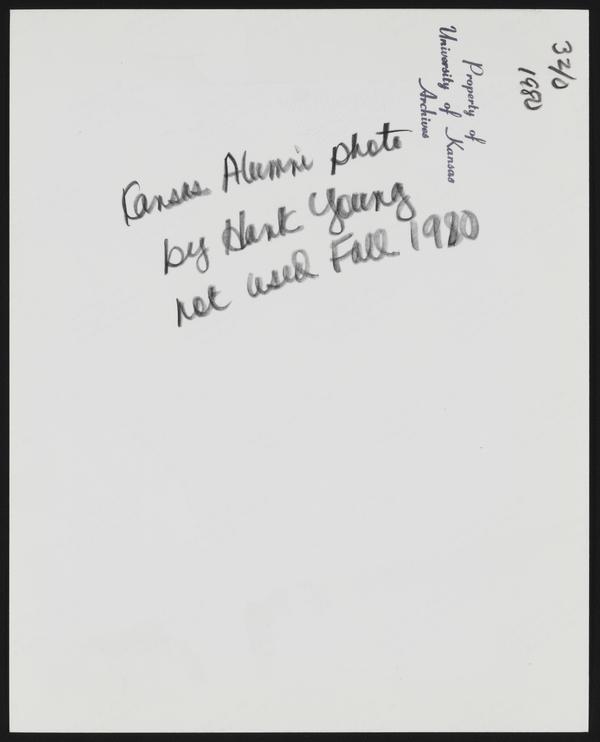 32/0
1980
Property of
University of Kansas
Archives
Kansas Alumni photo
by Hank Young
not used Fall 1980